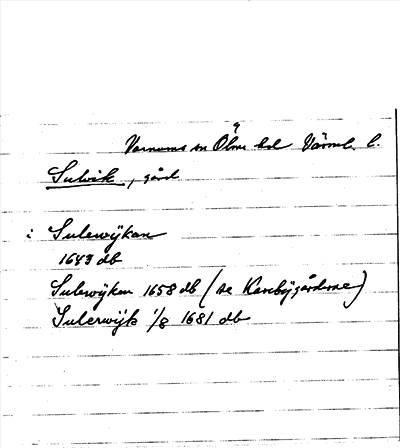 Varnums sn Ölme hd Värml. l.
Sulvik, gård
i Sulewijkan
1643 db
Sulewijken 1658 db (se Karebÿgårdrne)
Sulerwijk 1/8 1681 db